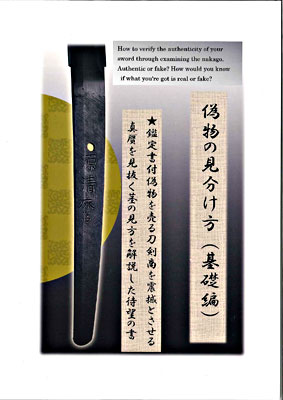 How to verify the authenticity of your
sword through examining the nakago.
Authentic or fake? How would you know
if what you're got is real or fake?
偽物の見分け方（基礎編）
★鑑定書付偽物を売る刀剣商を震撼とさせる
真贋を見抜く茎の見方を解説した待望の書